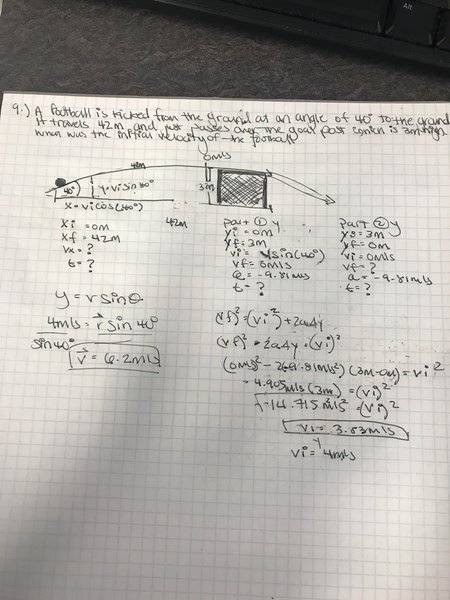 Alt
9.) A football is kicked from the ground at an angle of 40° to the ground
It travels 42m and just passes over the goal post which is 3m high
What was the initial velocity of the football
42m
0m/s
40°
y=visin40°
3m
x=vicos(40°)
42m
xi = 0m
xf = 42m
vx = ?
t = ?
part ① y
yi = 0m
yf = 3m
vi = vsin(40°)
vf = 0m/s
a = -9.81m/s
t = ?
part ② y
yi = 3m
yf = 0m
vi = 0m/s
vf = ?
a = -9.81m/s
t = ?
y = r sinθ
4m/s = r sin 40°
sin40°
v = 6.2m/s
(vf)² = (vi²) + 2aΔy
(vf)² - 2aΔy = (vi)²
(3m-0m) = vi²
(3m) = (vi)²
-14.715m²/s² = (vi)²
vi = 3.83m/s
y
vi = 4m/s